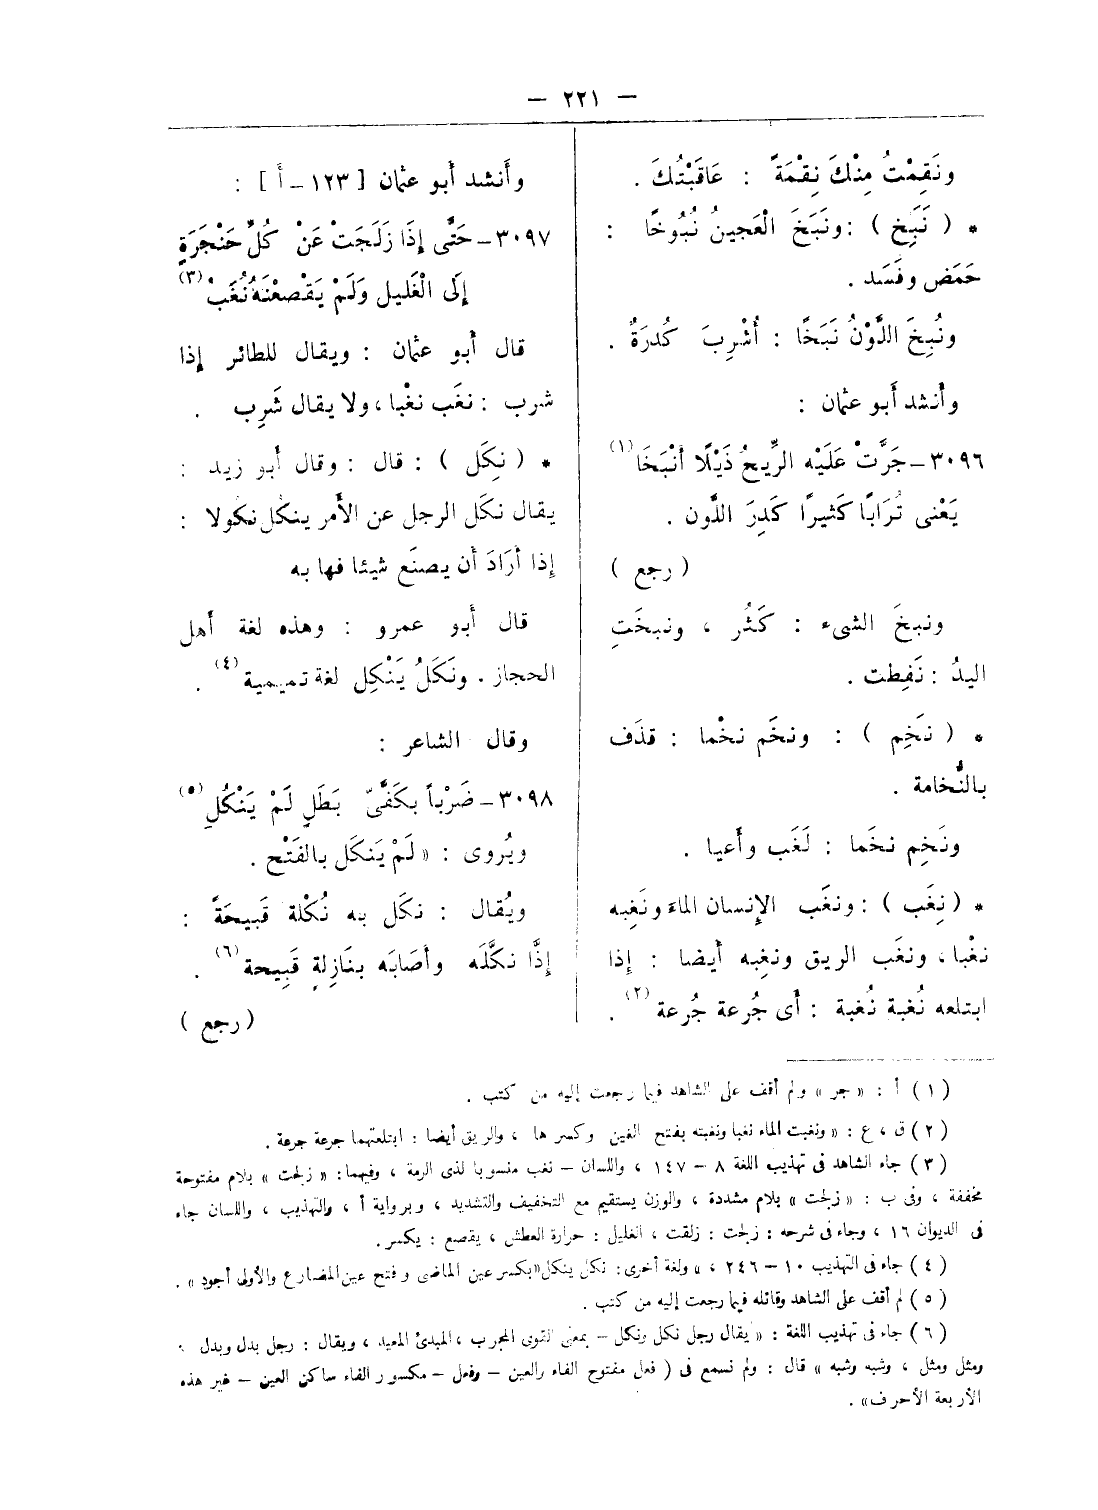 — ٢٢١ —
ونَقِمْتُ مِنْكَ نِقْمَةً : عَاقَبْتُكَ .
* ( نَبَخ ) : ونَبَخَ الْعَجينُ نُبُوخًا :
حَمَض وفَسَد .
ونُبِخَ اللَّوْنُ نَبَخًا : أُشْرِبَ كُدرَةً .
وأنشد أبو عثمان :
٣٠٩٦ – جَرَّتْ عَلَيْه الرِّيحُ ذَيْلًا أَنْبَخَا (١)
يَعْنى تُرَابًا كَثيرًا كَدِرَ اللَّون .
( رجع )
ونبخَ الشىء : كَثُر ، ونبخَتِ
اليدُ : نَفِطت .
* ( نَخِم ) : ونخَم نخْما : قذَف
بالنُّخامة .
ونَخِم نخَما : لَغَب وأَعيا .
* ( نغَب ) : ونغَب الإنسان الماءَ ونَغِبه
نغْبا ، ونغَب الريق ونغِبه أيضا : إذا
ابتلعه نُغبة نُغبة : أى جُرعة جُرعة (٢) .
وأنشد أبو عثمان [ ١٢٣ – أ ] :
٣٠٩٧ – حَتَّى إِذَا زَلَجَتْ عَنْ كُلِّ حَنْجَرَةٍ
إِلَى الْغَليل وَلَمْ يَقْصعْنَهُ نُغَبُ (٣)
قال أبو عثمان : ويقال للطائر إذا
شرب : نغَب نغْبا ، ولا يقال شَرِب .
* ( نكَل ) : قال : وقال أبو زيد :
يقال نكَل الرجل عن الأمر ينكُل نكولا :
إذا أرَادَ أن يصنَع شيئا فهابه
قال أبو عمرو : وهذه لغة أهل
الحجاز . ونَكَلُ يَنْكِل لغة تميمية (٤) .
وقال الشاعر :
٣٠٩٨ – ضَرْباً بكَفَّىْ بَطَلٍ لَمْ يَنْكُلِ (٥)
ويُروى : « لَمْ يَنكَل بالفَتْح .
ويُقال : نكَل به نُكْلة قَبيحَةً :
إذَّا نكَّلَه وأصَابَه بنَازِلةٍ قَبِيحة (٦) .
( رجع )
( ١ ) أ : « جر » ولم أقف على الشاهد فيما رجعت إليه من كتب .
( ٢ ) ق ، ع : « ونغبت الماء نغبا ونغبته بفتح الغين وكسرها ، والريق أيضا : ابتلعتهما جرعة جرعة .
( ٣ ) جاء الشاهد فى تهذيب اللغة ٨ – ١٤٧ ، واللسان – نغب منسوبا لذى الرمة ، وفيهما : « زلجت » بلام مفتوحة
مخففة ، وفى ب : « زلجت » بلام مشددة ، والوزن يستقيم مع التخفيف والتشديد ، وبرواية أ ، والتهذيب ، واللسان جاء
فى الديوان ١٦ ، وجاء فى شرحه : زلجت : زلقت ، الغليل : حرارة العطش ، يقصع : يكسر .
( ٤ ) جاء فى التهذيب ١٠ – ٢٤٦ ، « ولغة أخرى : نكل ينكل « بكسر عين الماضى وفتح عين المضارع والأولى أجود » .
( ٥ ) لم أقف على الشاهد وقائله فيما رجعت إليه من كتب .
( ٦ ) جاء فى تهذيب اللغة : « يقال رجل نكل ونكل – بمعنى القوى المجرب ، المبدئ المعيد ، ويقال : رجل بدل وبدل ،
ومثل ومثل ، وشبه وشبه » قال : ولم نسمع فى ( فعل مفتوح الفاء والعين – وفعل – مكسور الفاء ساكن العين – غير هذه
الأربعة الأحرف» .